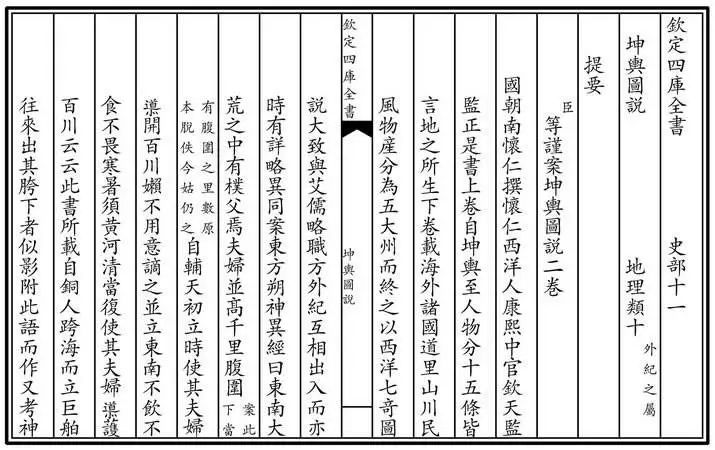 欽定四庫全書 史部十一
坤輿圖說 地理類十 外紀之屬
提要
臣等謹案坤輿圖說二卷
國朝南懷仁撰懷仁西洋人康熙中官欽天監
監正是書上卷自坤輿至人物分十五條皆
言地之所生下卷載海外諸國道里山川民
風物産分為五大州而終之以西洋七竒圖
欽定四庫全書 坤輿圖說
說大致與艾儒略職方外紀互相出入而亦
時有詳略異同案東方朔神異經曰東南大
荒之中有樸父焉夫婦並髙千里腹圍案此下當
有腹圍之里數原本脫佚今姑仍之自輔天初立時使其夫婦
導開百川嬾不用意謫之並立東南不飲不
食不畏寒暑須黄河清當復使其夫婦導護
百川云云此書所載自銅人跨海而立巨舶
往來出其胯下者似影附此語而作又考神